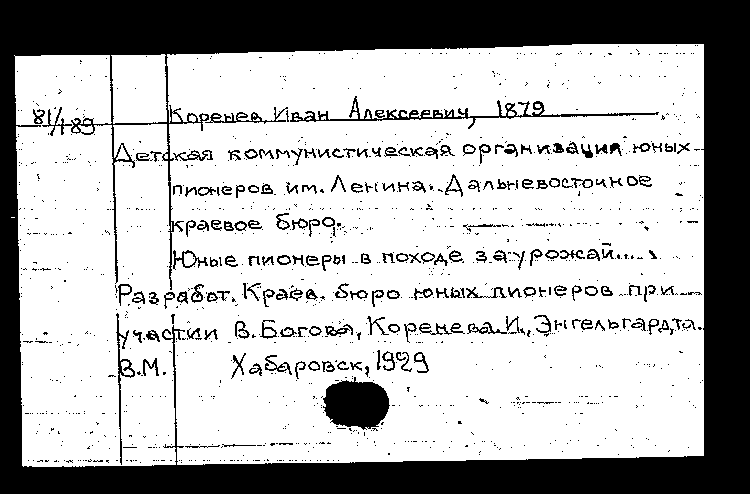 81/189
Коренев, Иван Алексеевич, 1879
Детская коммунистическая организация юных
пионеров им. Ленина. Дальневосточное
краевое бюро.
Юные пионеры в походе за урожай....
Разработ. Краев. бюро юных пионеров при
участии В. Богова, Коренева И., Энгельгардта
В.М. Хабаровск, 1929